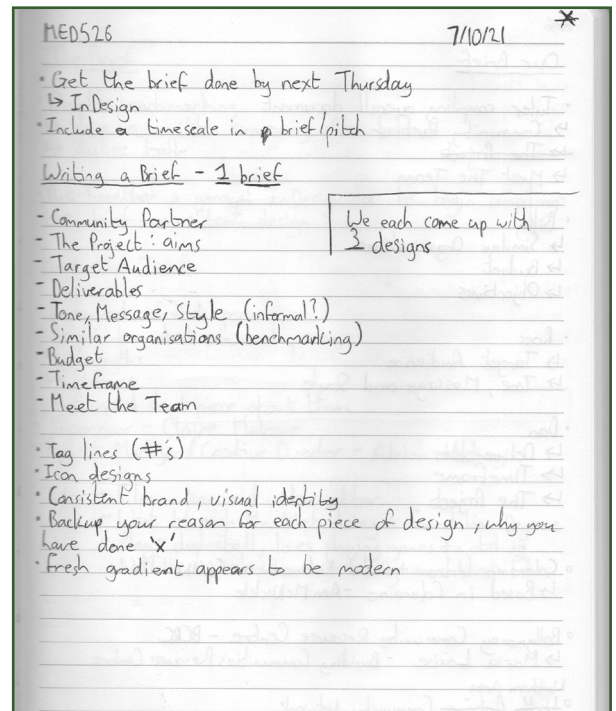 MED526
7/10/21
• Get the brief done by next Thursday
↳ InDesign
• Include a timescale in brief/pitch
Writing a Brief - 1 brief
We each come up with
3 designs
- Community Partner
- The Project : aims
- Target Audience
- Deliverables
- Tone, Message, Style (informal?)
- Similar organisations (benchmarking)
- Budget
- Timeframe
- Meet the Team
• Tag lines (#'s)
• Icon designs
• Consistent brand, visual identity
• Backup your reason for each piece of design, why you
have done 'x'
• Fresh gradient appears to be modern